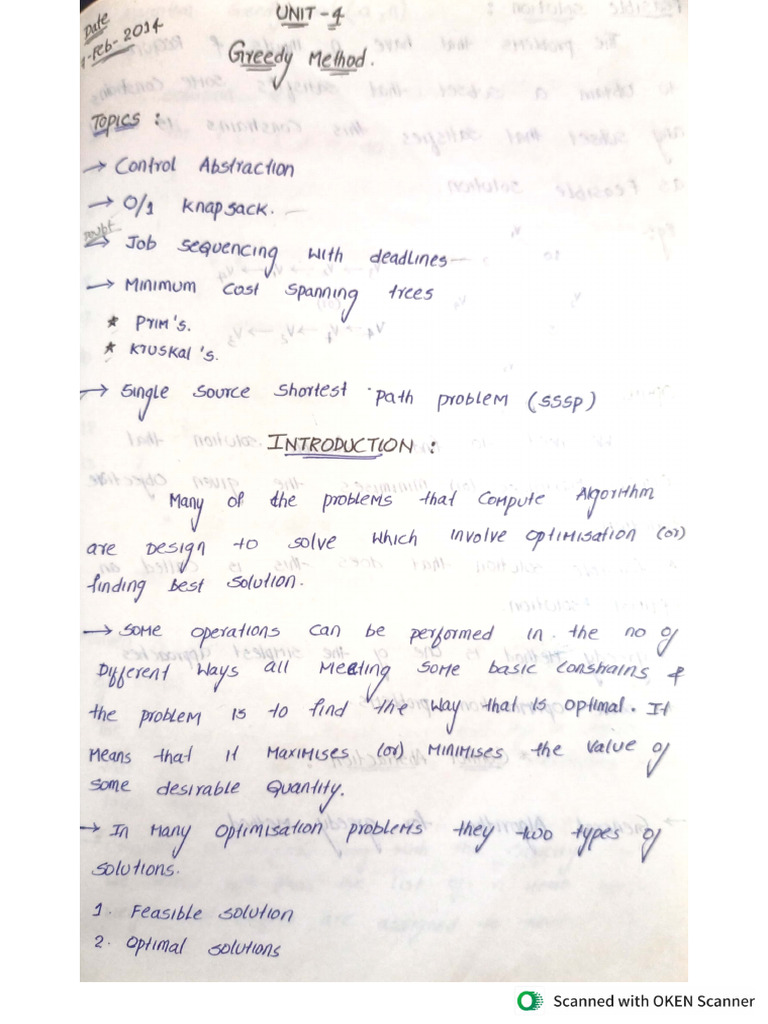 Date
-Feb-2014
UNIT-4
Greedy Method.
TOPICS :
→ Control Abstraction
→ 0/1 Knapsack.
Doubt
→ Job sequencing with deadlines
→ Minimum cost spanning trees
* Prim's.
* Kruskal's.
→ Single source shortest path problem (SSSP)
INTRODUCTION :
Many of the problems that compute Algorithm
are Design to solve which involve optimisation (or)
finding best solution.
→ some operations can be performed in the no of
Different ways all Meeting some basic constrains &
the problem is to find the way that is optimal. It
Means that it Maximises (or) Minimises the value of
some desirable Quantity.
→ In Many optimisation problems they two types of
solutions.
1. Feasible solution
2. optimal solutions
Scanned with OKEN Scanner